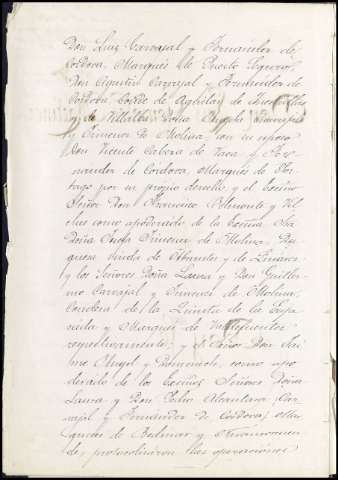 Don Luis Carvajal y Fernandez de
Cordova, Marqués de Puerto Seguro,
Don Agustin Carvajal y Fernandez de
Cordova, Conde de Aguilar de
y de Villalba, Doña Angela Carvajal
y Jimenez de Molina, con su esposo
Don Vicente Cabeza de Vaca y Fer-
nandez de Córdova, Marqués de Por-
tago por su propio derecho, y el Exmo
Señor Don Francisco Belmonte y Vil-
ches como apoderado de la Exma. Sra.
Doña Josefa Jimenez de Molina, Du-
quesa viuda de Abrantes y de Linares
y los Señores Doña Laura y Don Guiller-
mo Carvajal y Jimenez de Molina,
Condesa de la Quinta de la Enja-
rada y Marqués de
respectivamente; y el Señor Don Jai-
me Angel y como apo-
derado de los Exmos Señores Doña
Laura y Don Pedro Alcantara Car-
vajal y Fernandez de Córdova, Mar-
queses de Bedmar y
de, protocolizaron las operaciones